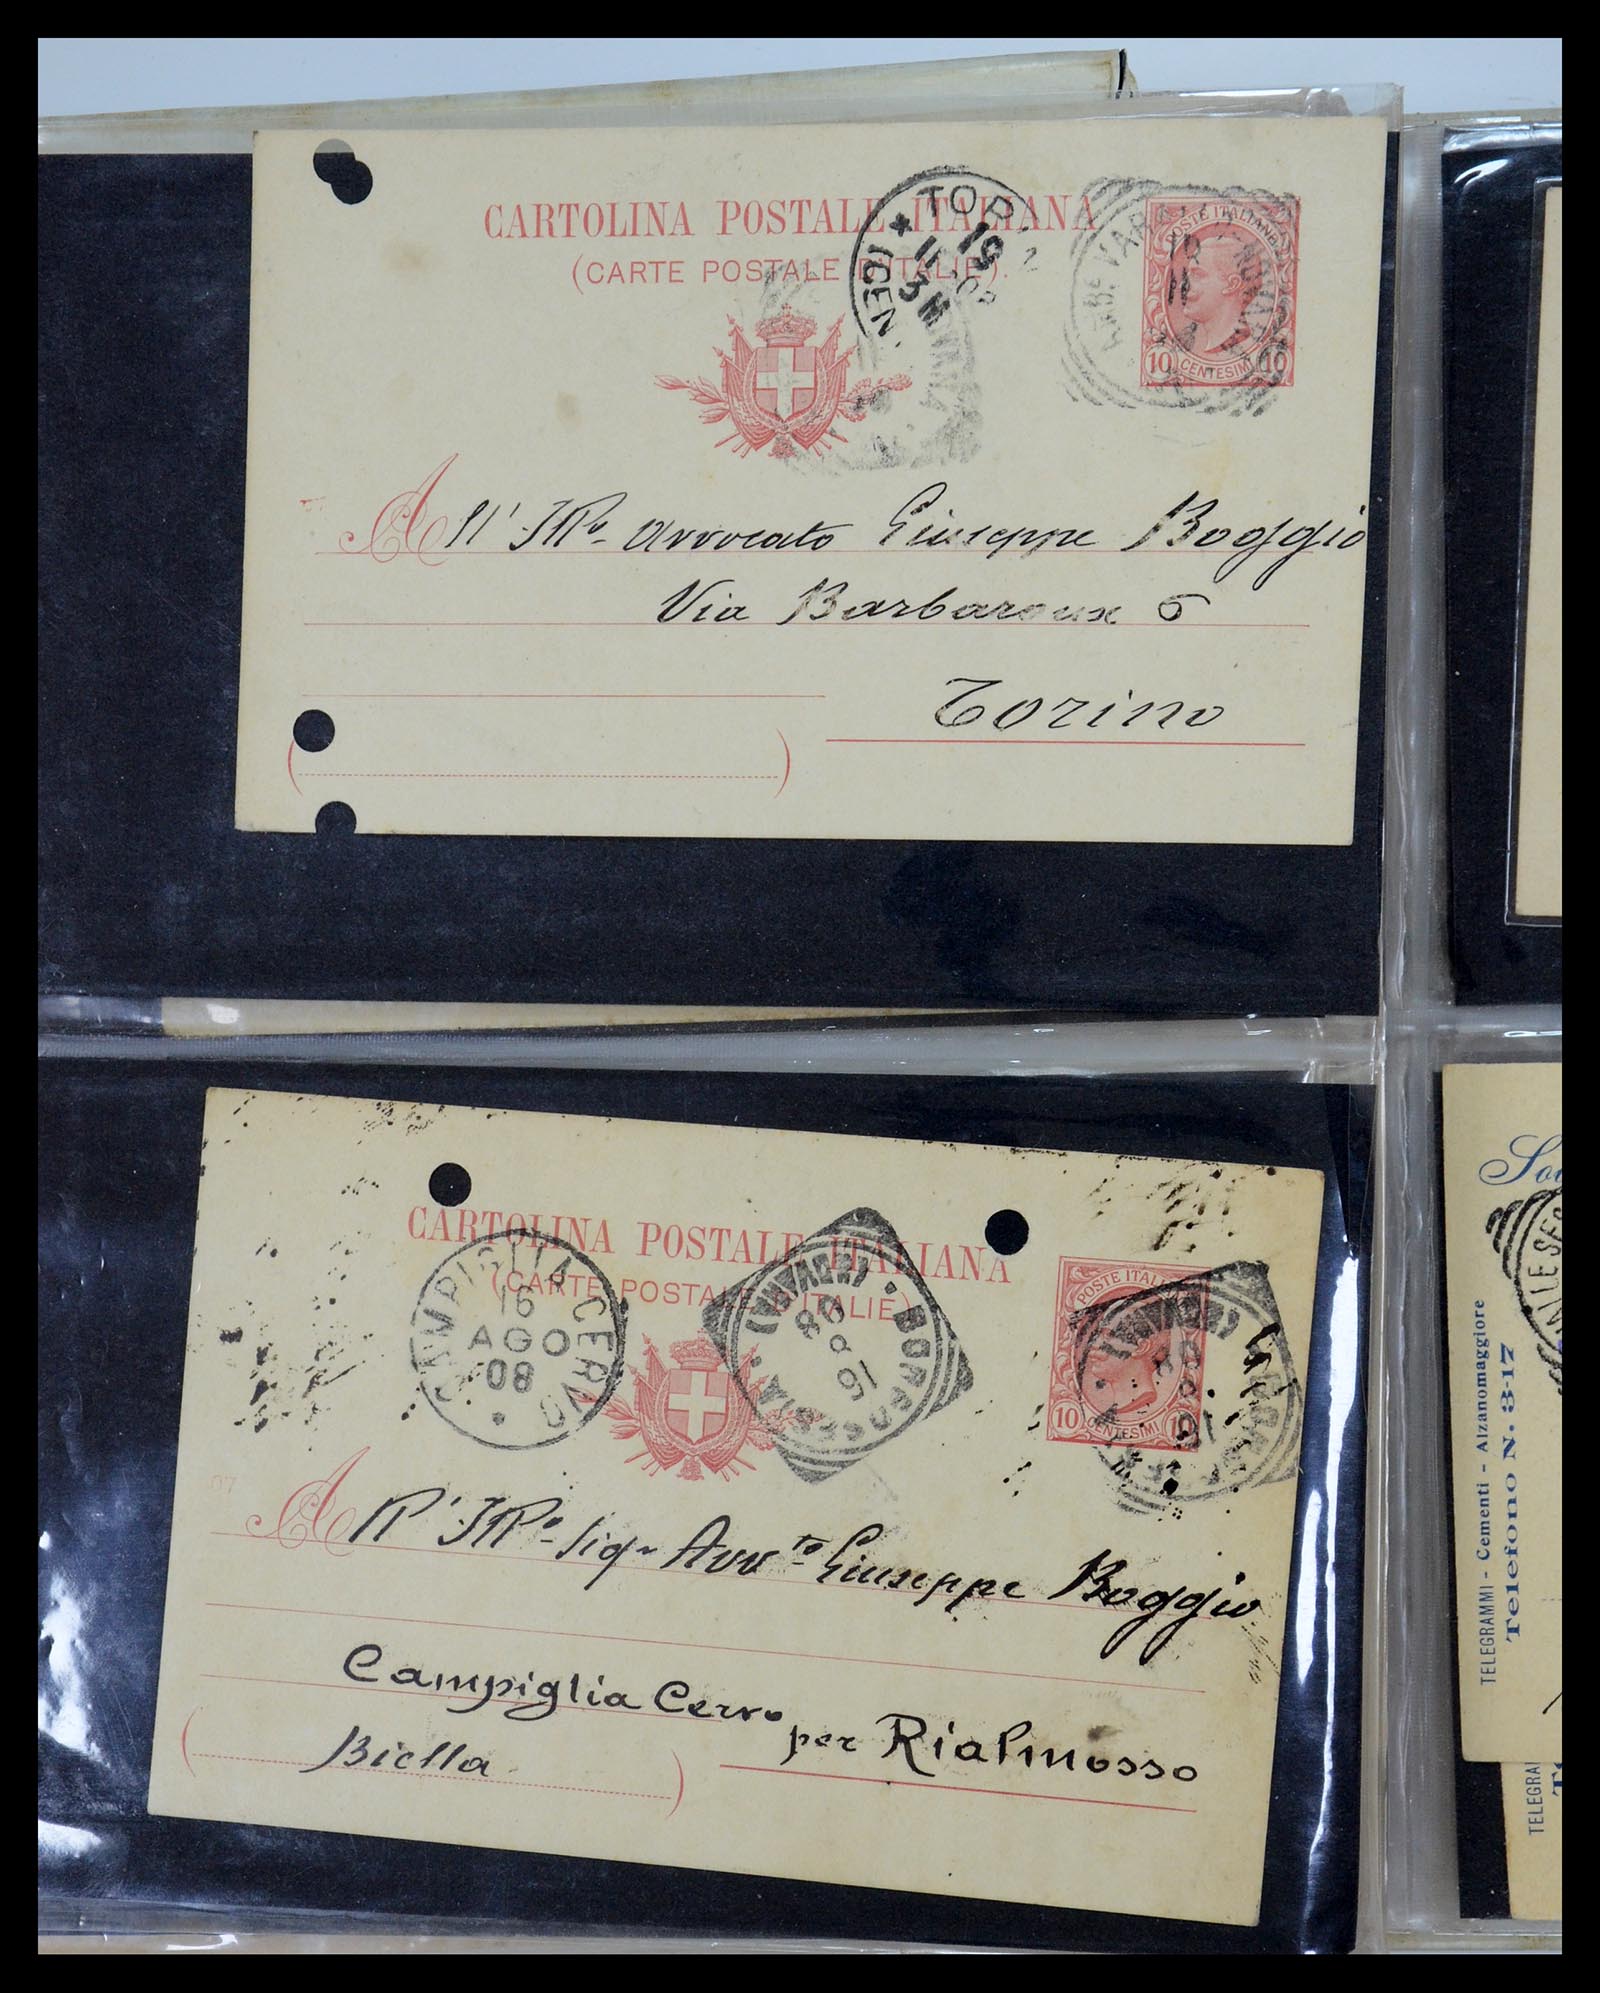 CARTOLINA POSTALE ITALIANA
(CARTE POSTALE D'ITALIE).
POSTE ITALIANE
10 CENTESIMI 10
TOR
19
11
(CEN
All' Ill.o avvocato Giuseppe Boggio
Via Barbaroux 6
Torino
CARTOLINA POSTALE ITALIANA
(CARTE POSTALE D'ITALIE)
CAMPIGLIA CERVO
16
AGO
08
BORGOSESIA
(NOVARA)
16 8 08
POSTE ITALIANE
10 CENTESIMI 10
BORGOSESIA
(NOVARA)
16 8 08
07
All' Ill.o Sig. Avv.to Giuseppe Boggio
Campiglia Cervo
per Rialmosso
(Biella)
TELEGRAMMI - Cementi - Alzanomaggiore
Telefono N. 3-17
TELEGRA